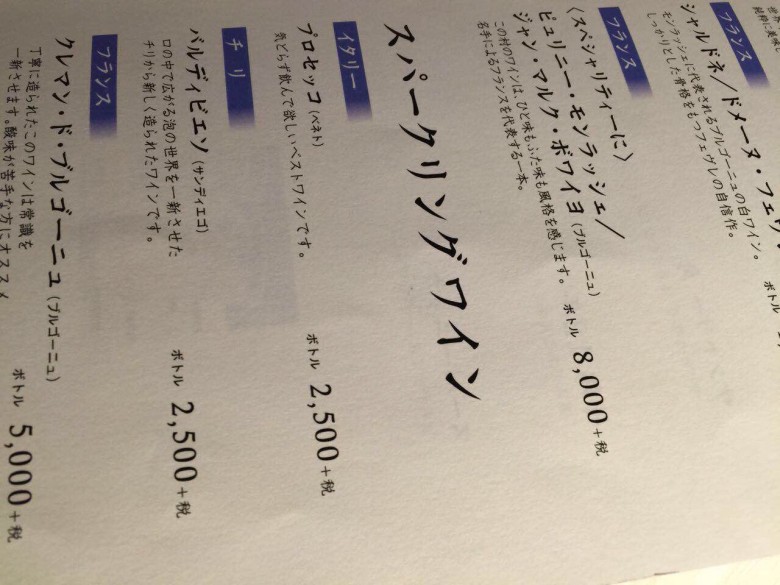 フランス
シャルドネ/ドメーヌ・フェヴ
モンラッシェに代表されるブルゴーニュの白ワイン。
しっかりとした骨格をもつフェヴレの自信作。
ボトル
フランス
〈スペシャリティーに〉
ピュリニー・モンラッシェ/
ジャン・マルク・ボワイヨ(ブルゴーニュ)
この村のワインは、ひと味もふた味も風格を感じます。
名手によるフランスを代表する一本。
ボトル 8,000+税
スパークリングワイン
イタリー
プロセッコ(ベネト)
気どらず飲んで欲しいベストワインです。
ボトル 2,500+税
チリ
バルディビエソ(サンディエゴ)
口の中で広がる泡の世界を一新させた
チリから新しく造られたワインです。
ボトル 2,500+税
フランス
クレマン・ド・ブルゴーニュ(ブルゴーニュ)
丁寧に造られたこのワインは常識を
一新させます。酸味が苦手な方にオススメ
ボトル 5,000+税